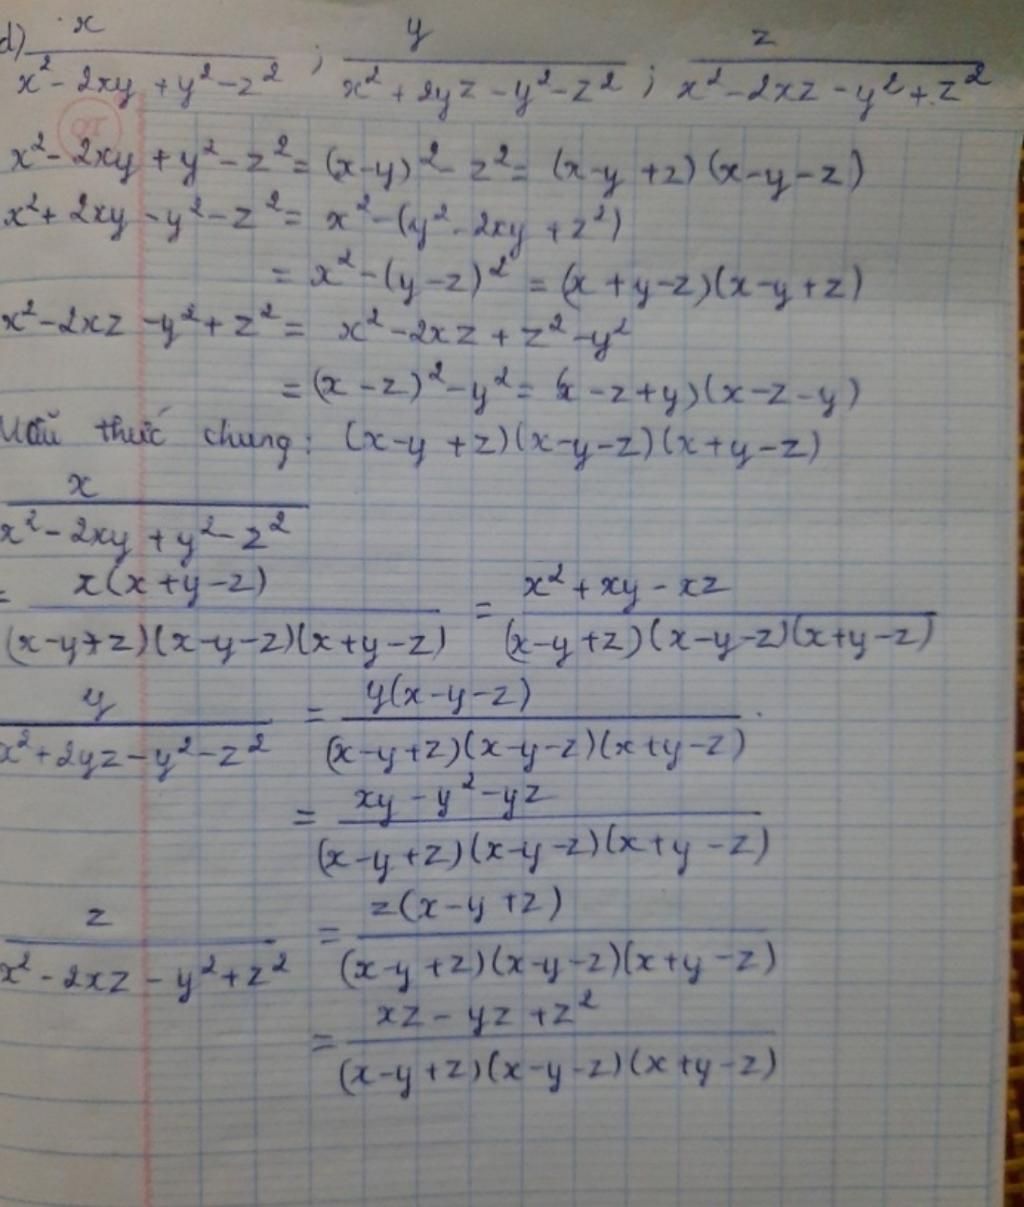 d) x/(x² - 2xy + y² - z²) ; y/(x² + 2yz - y² - z²) ; z/(x² - 2xz - y² + z²)
x² - 2xy + y² - z² = (x-y)² - z² = (x-y+z)(x-y-z)
x² + 2xy - y² - z² = x² - (y² - 2xy + z²)
= x² - (y-z)² = (x+y-z)(x-y+z)
x² - 2xz - y² + z² = x² - 2xz + z² - y²
= (x-z)² - y² = (x-z+y)(x-z-y)
Mẫu thức chung: (x-y+z)(x-y-z)(x+y-z)
x/(x² - 2xy + y² - z²)
= x(x+y-z)/(x-y+z)(x-y-z)(x+y-z) = x² + xy - xz/(x-y+z)(x-y-z)(x+y-z)
y/(x² + 2yz - y² - z²) = y(x-y-z)/(x-y+z)(x-y-z)(x+y-z)
= xy - y² - yz/(x-y+z)(x-y-z)(x+y-z)
z/(x² - 2xz - y² + z²) = z(x-y+z)/(x-y+z)(x-y-z)(x+y-z)
= xz - yz + z²/(x-y+z)(x-y-z)(x+y-z)